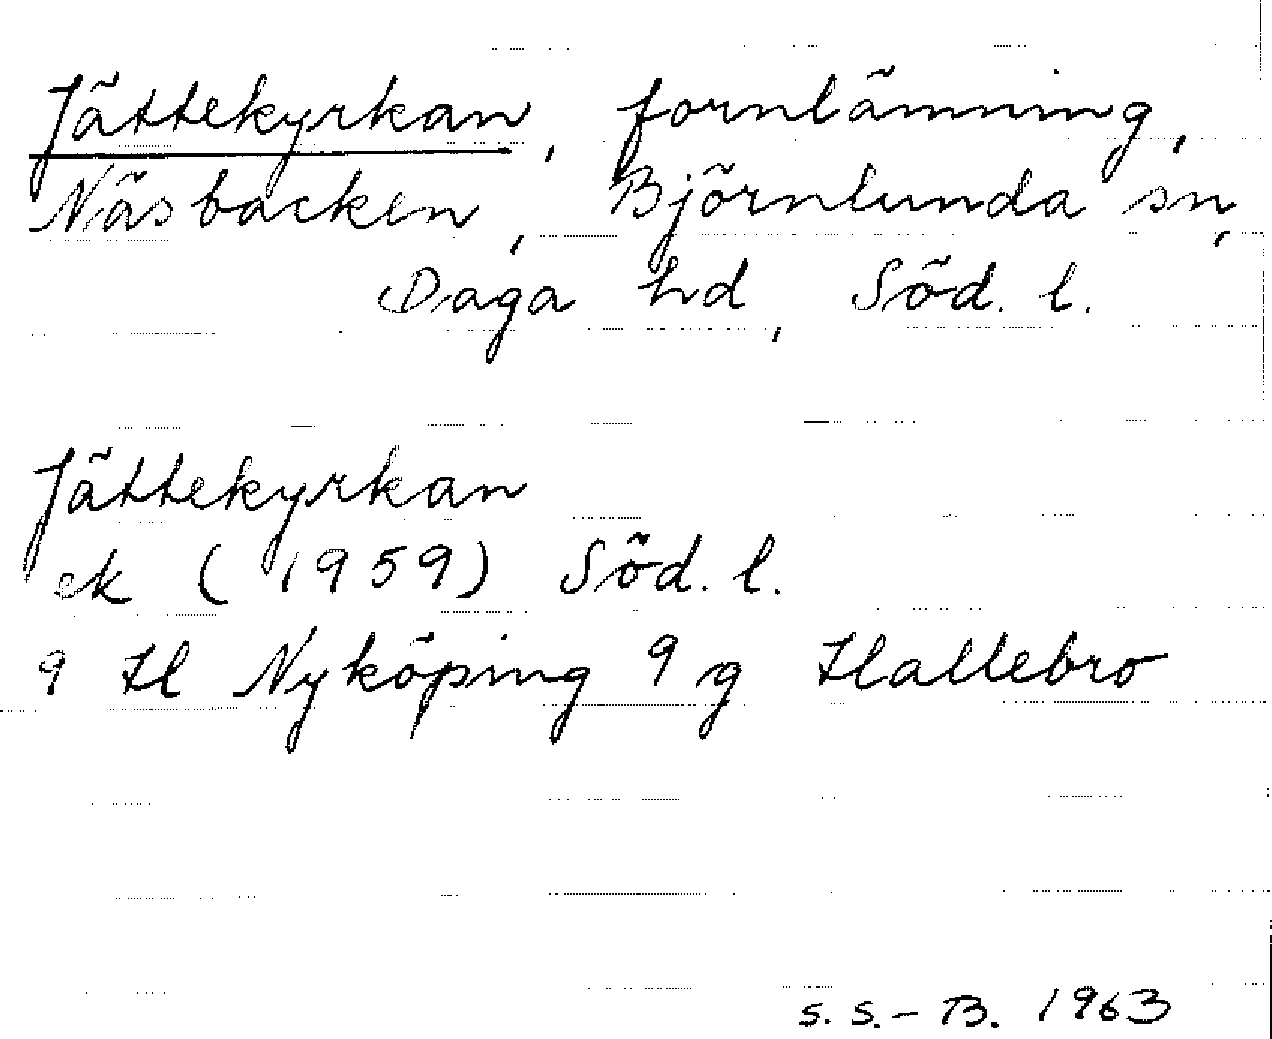 Jättekyrkan, fornlämning,
Näsbacken, Björnlunda sn,
Daga hd, Söd. l.
Jättekyrkan
ek (1959) Söd. l.
9 H Nyköping 9 g Hallebro
S. S.-B. 1963